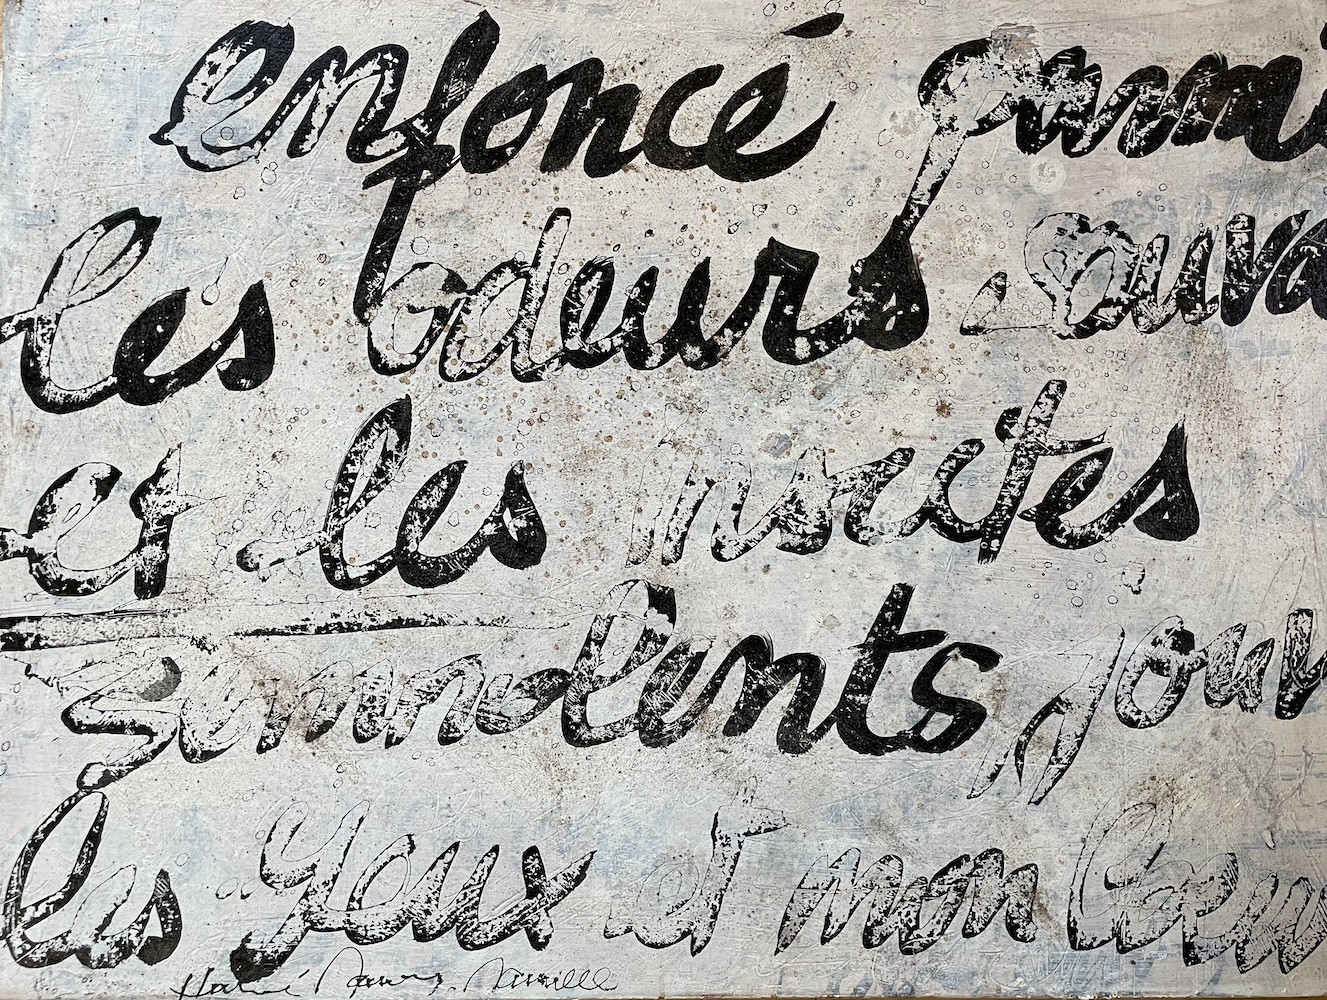 enfoncé parmi
les odeurs sauva
et les insectes
somnolents jouv
les yeux et mon coeu